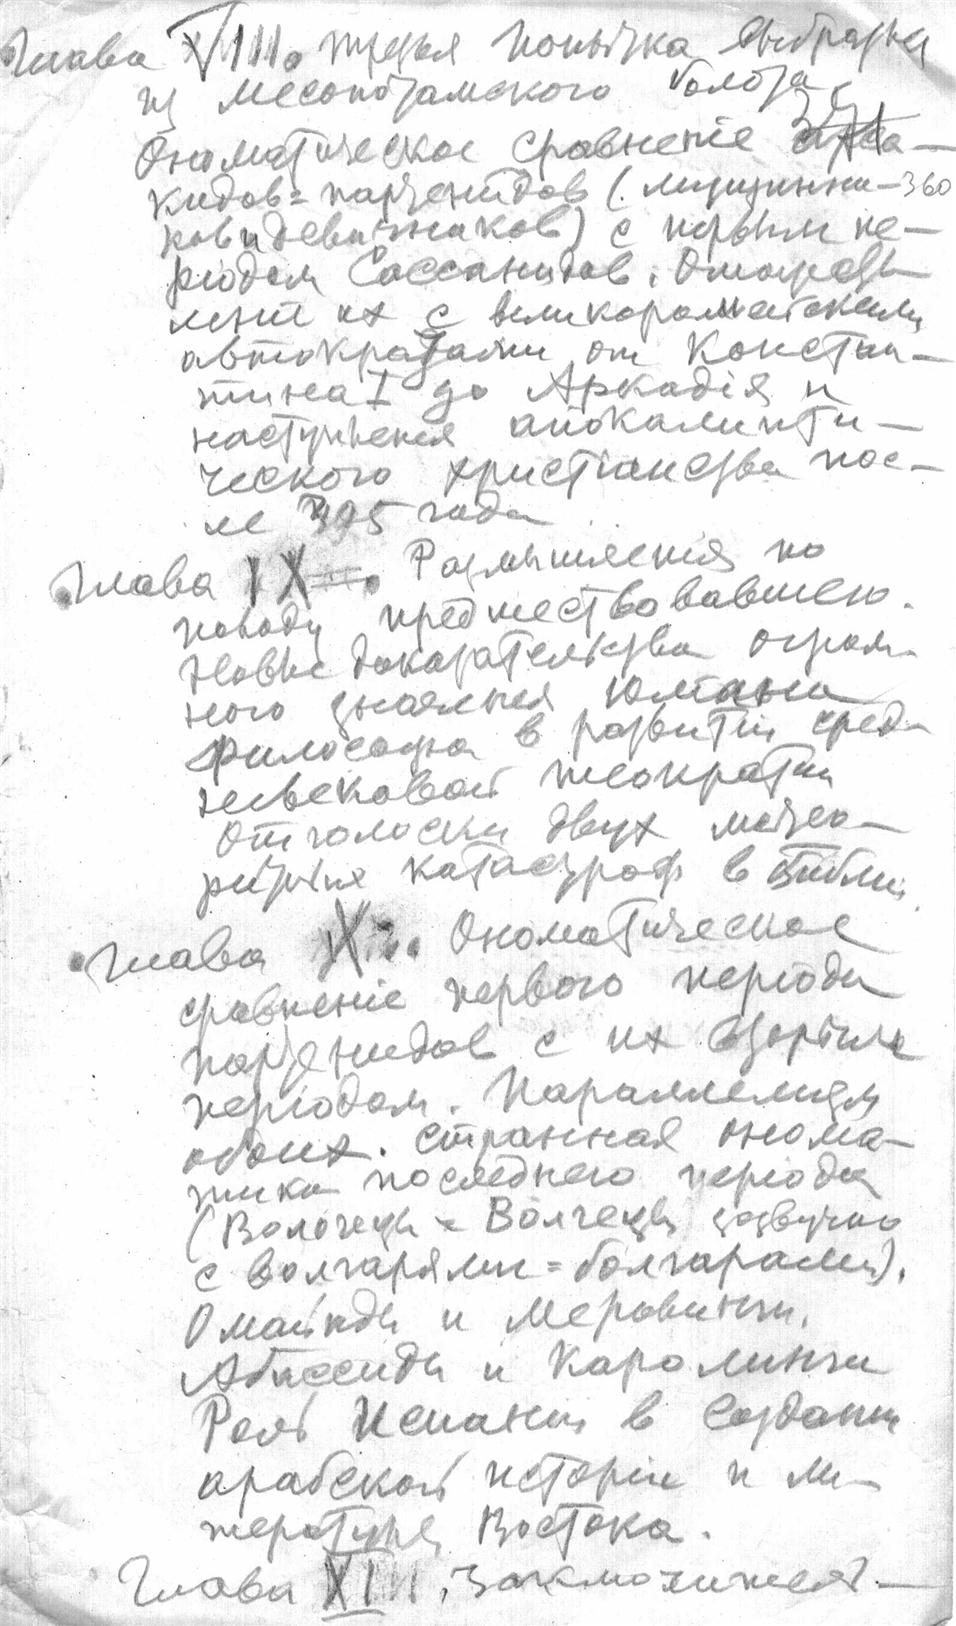 Глава VIII. Третья попытка выбраться
из Месопотамского болота.
Ономатическое сравненіе арса-
кидов = парθенидов (мущинни- 360
ков и девичников) с первым пе-
ріодом Сассанидов. Отождеств
леніе их с великоромейскими
автократами от Констан-
тина I до Аркадія и
наступленія апокалипти-
ческого христіанства пос-
ле 395 года
Глава IX. Размышленія по
поводу предшествовавшего.
Новые доказательства огром-
ного значенія Юліана
философа в развитіи сред-
невековой теократіи
Отголоски двух метео-
ритных катастроф в Библіи
Глава X. Ономатическое
сравненіе первого періода
парθенидов с их вторым
періодом. Параллелизм
обоих. Странная онома-
тика последнего періода
(Вологезы = Волгезы, созвучно
с волгарями = болгарами).
Омайяды и Меровинги.
Абассиды и Каролинги
Роль Испаніи в создании
арабской исторіи и ли-
тературы Востока.
Глава XI. Заключительная